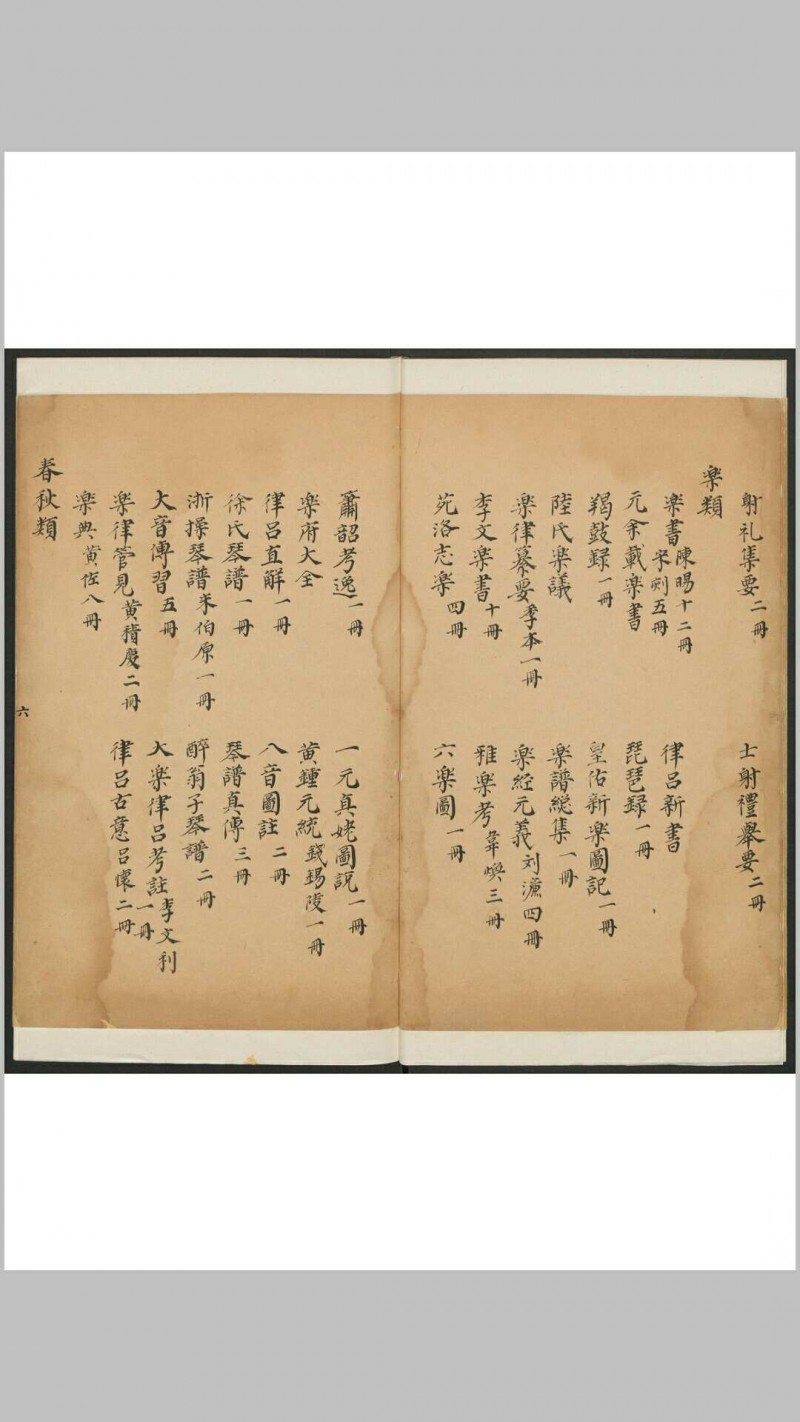 射礼集要二冊
士射禮舉要二冊
楽類
楽書陳暘十二冊
宋刻五冊
律呂新書
元余載楽書
琵琶録一冊
羯鼓録一冊
皇佑新楽圖記一冊
陸氏楽議
楽譜総集一冊
楽律纂要季本一冊
楽経元義刘濂四冊
李文楽書十冊
雅楽考韋煥三冊
苑洛志楽四冊
六楽圖一冊
簫韶考逸一冊
一元真姥圖説一冊
楽府大全
黄鍾元統
律呂直解一冊
八音圖註二冊
徐氏琴譜一冊
琴譜真傳三冊
浙操琴譜朱伯原一冊
醉翁子琴譜二冊
大音傳習五冊
大楽律呂考註李文利
一冊
楽律管見黄積慶二冊
律呂古意呂懷二冊
楽典黄佐八冊
春秋類
六